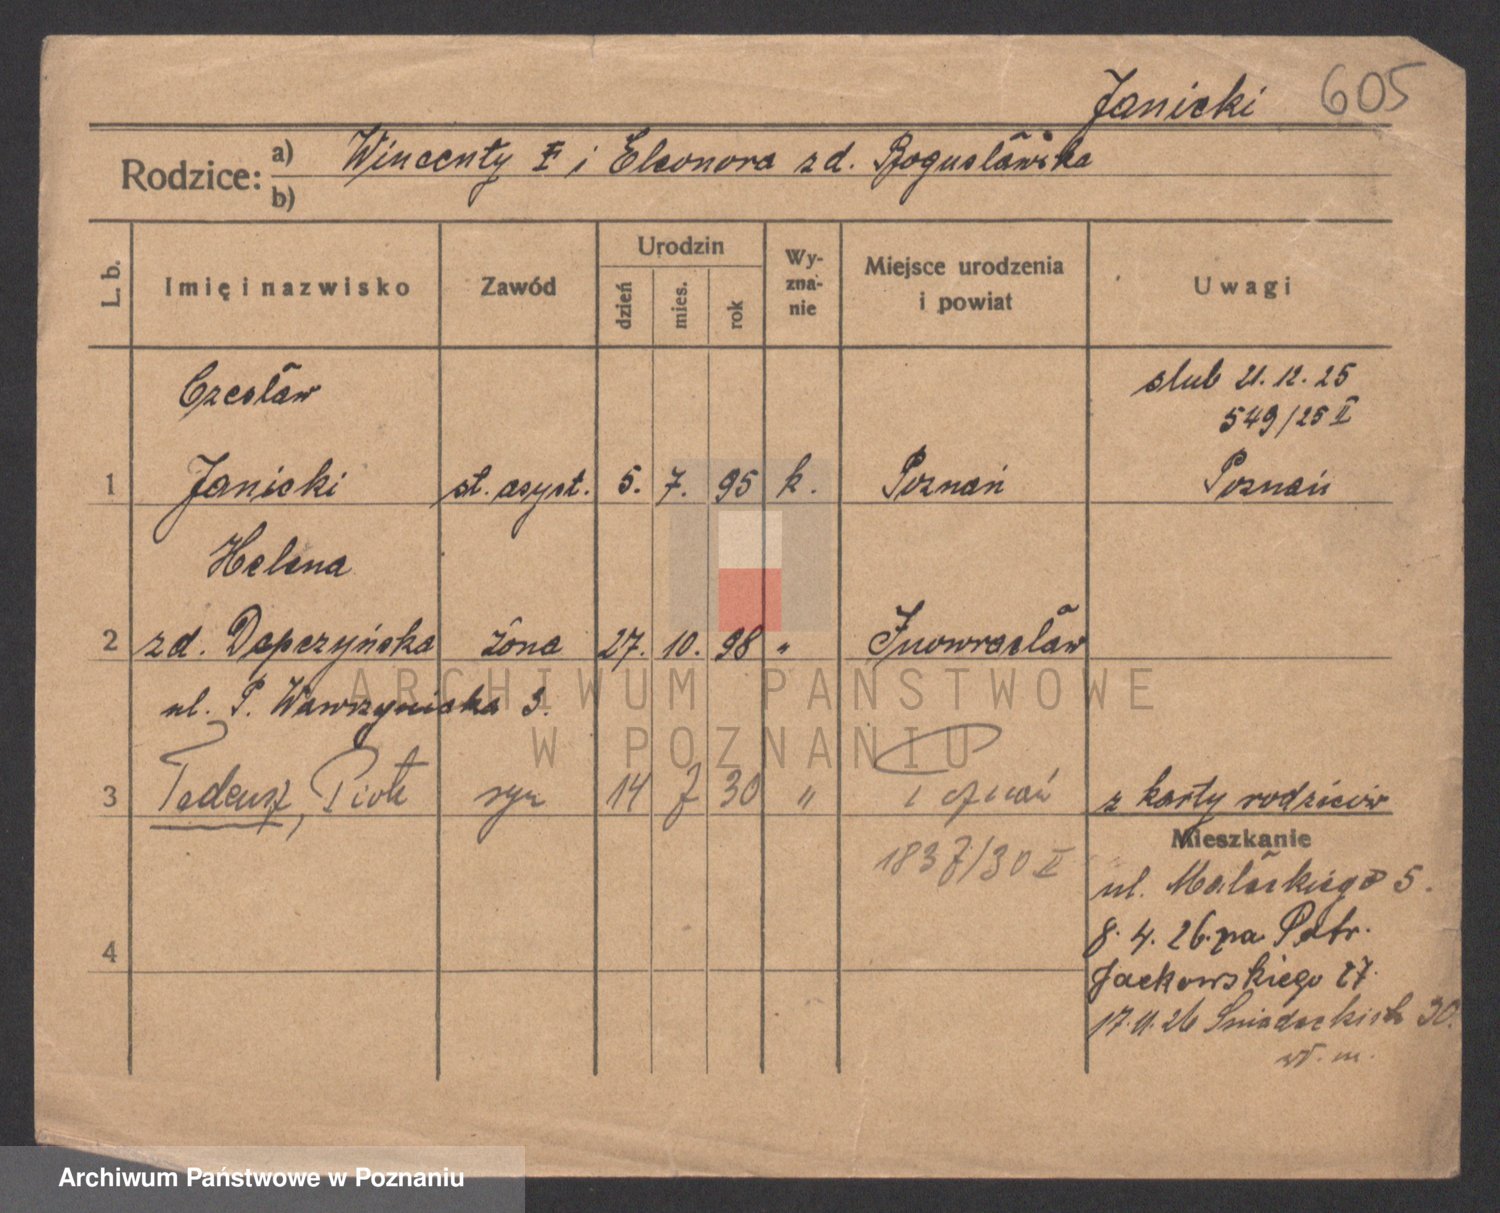 Janicki 605
Rodzice: a) Wincenty i Eleonora zd. Bogusławska
b)
L. b. Imię i nazwisko Zawód Urodzin dzień mies. rok Wyznanie Miejsce urodzenia i powiat Uwagi
Czesław ślub 21.12.25
549/25 II
1 Janicki st. asyst. 5. 7. 95 k. Poznań Poznań
Helena
2 zd. Depczyńska żona 27. 10. 98 " Inowrocław
ul. P. Wawrzyniaka 3.
3 Tadeusz, Piotr syn 14 7 30 " Poznań z karty rodziców
1837/30 II
Mieszkanie
ul. Małeckiego 5.
8. 4. 26. na Patr.
4
Jackowskiego 27.
17.11.26 Śniadeckich 30.
w. m.
ARCHIWUM PAŃSTWOWE
W POZNANIU
Archiwum Państwowe w Poznaniu